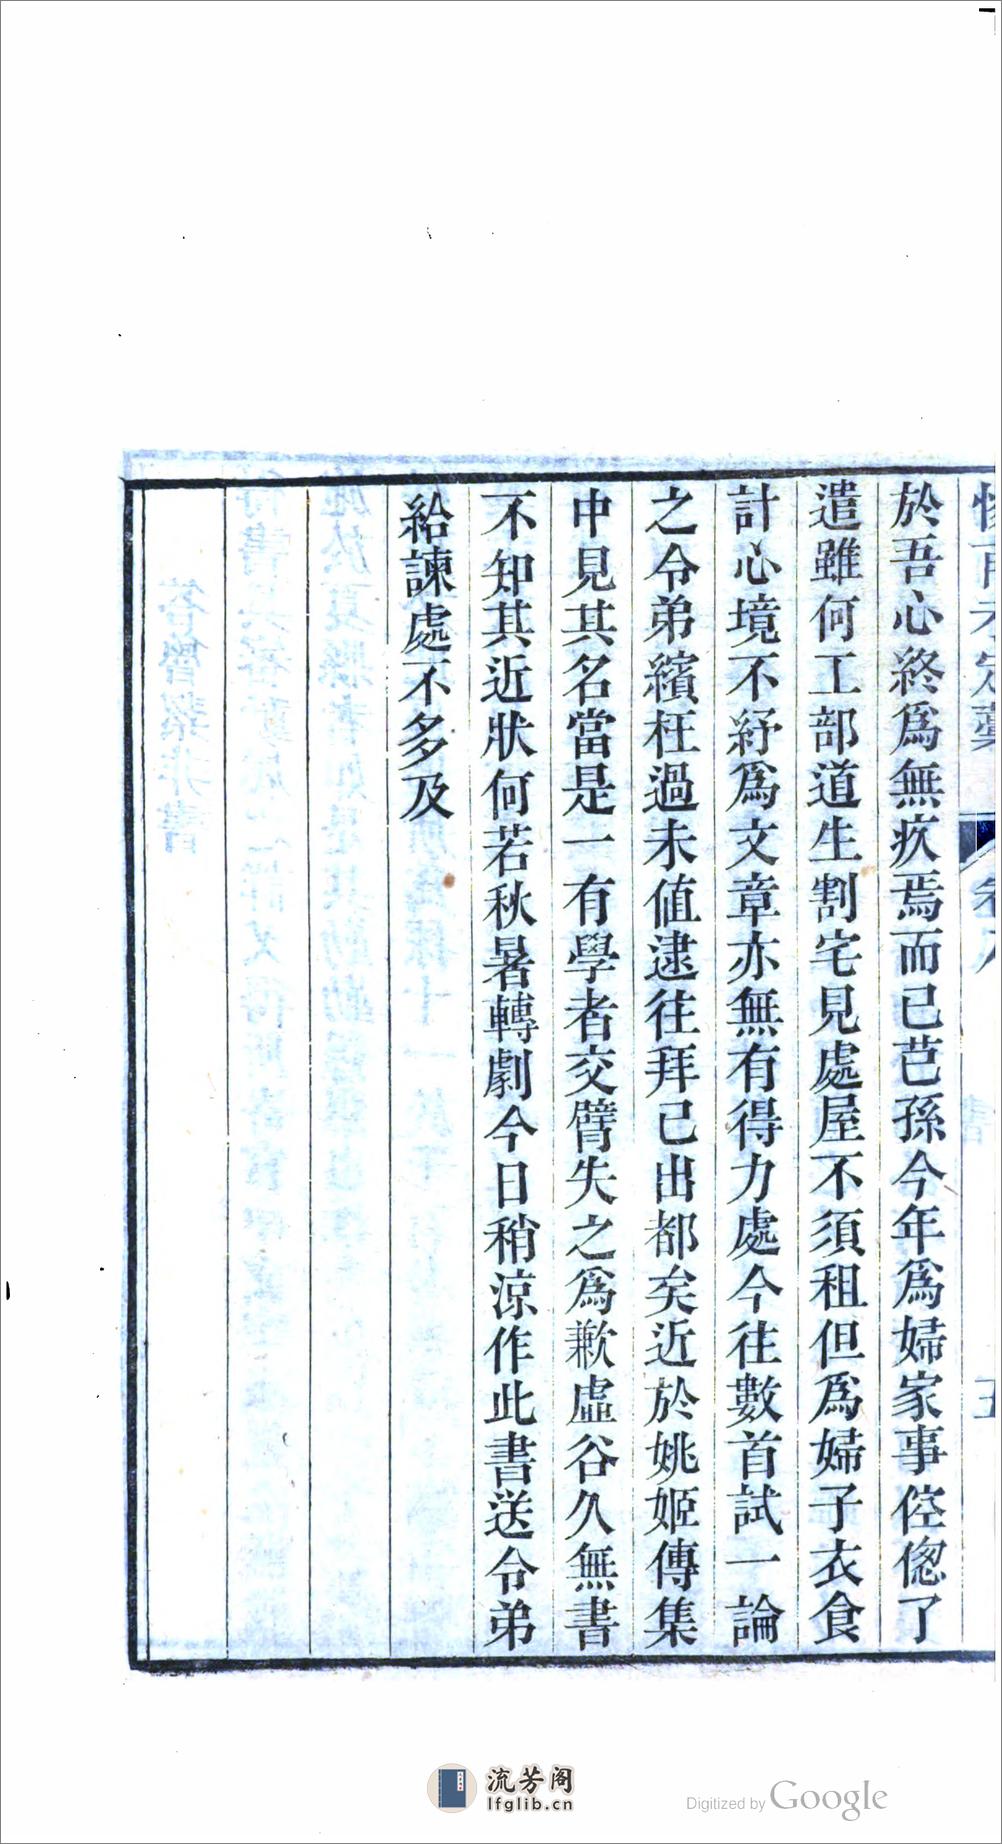 於吾心終爲無疚焉而已芭孫今年爲婦家事倥傯了
遣雖何工部道生割宅見處屋不須租但爲婦子衣食
計心境不紓爲文章亦無有得力處今往數首試一論
之令弟繽枉過未值逮往拜已出都矣近於姚姬傳集
中見其名當是一有學者交臂失之爲歉虛谷久無書
不知其近狀何若秋暑轉劇今日稍涼作此書送令弟
給諫處不多及
流芳阁
lfglib.cn
Digitized by Google